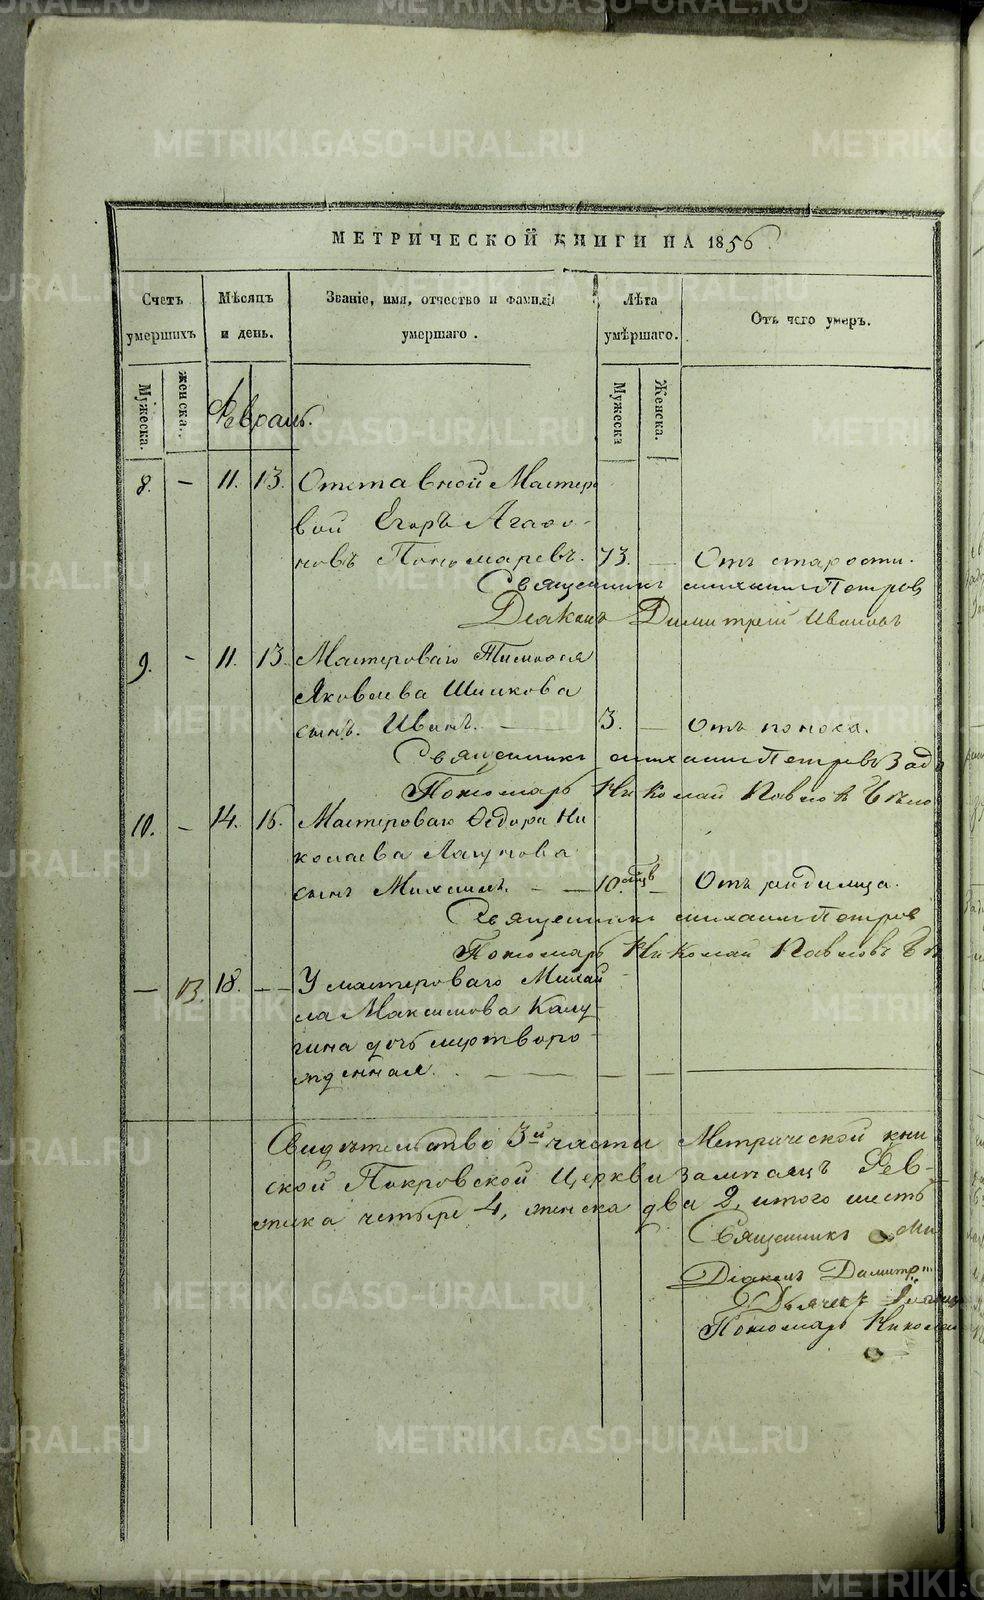 МЕТРИЧЕСКОЙ КНИГИ НА 1856
Счетъ умершихъ
Мѣсяцъ и день.
Званіе, имя, отчество и фамилія умершаго.
Лѣта умѣршаго.
Отъ чего умеръ.
Мужеска.
женска.
Мужеска
Женска.
Февраль.
8. – 11. 13. Отставной Мастеро
вой Егоръ Агафо-
новъ Пономаревъ. 73. — Отъ старости.
Священникъ Михаилъ Петров
Діаконъ Димитрій Ивановъ
9. – 11. 13. Мастероваго Тимофея
Яковлева Шишкова
сынъ Иванъ. — 3. — Отъ поноса.
Священникъ Михаилъ Петровъ
Пономарь Николай Павловъ
10. – 14. 16. Мастероваго Ѳедора Ни
колаева
сынъ Михаилъ. — 10. мцв — Отъ родимца.
Священникъ Михаилъ Петров
Пономарь Николай Павловъ
— 13. 18. — У мастероваго Михаи
ла Максимова Калу
гина дочь мертворо-
жденная.
Свидѣтельство 3й части Метрической кни
ской Покровской Церкви за мѣсяцъ Фев-
жска четыре 4, женска два 2, итого шесть
Священникъ Ми
Діаконъ Димитр
Дьячекъ
Пономарь Никол
METRIKI.GASO-URAL.RU